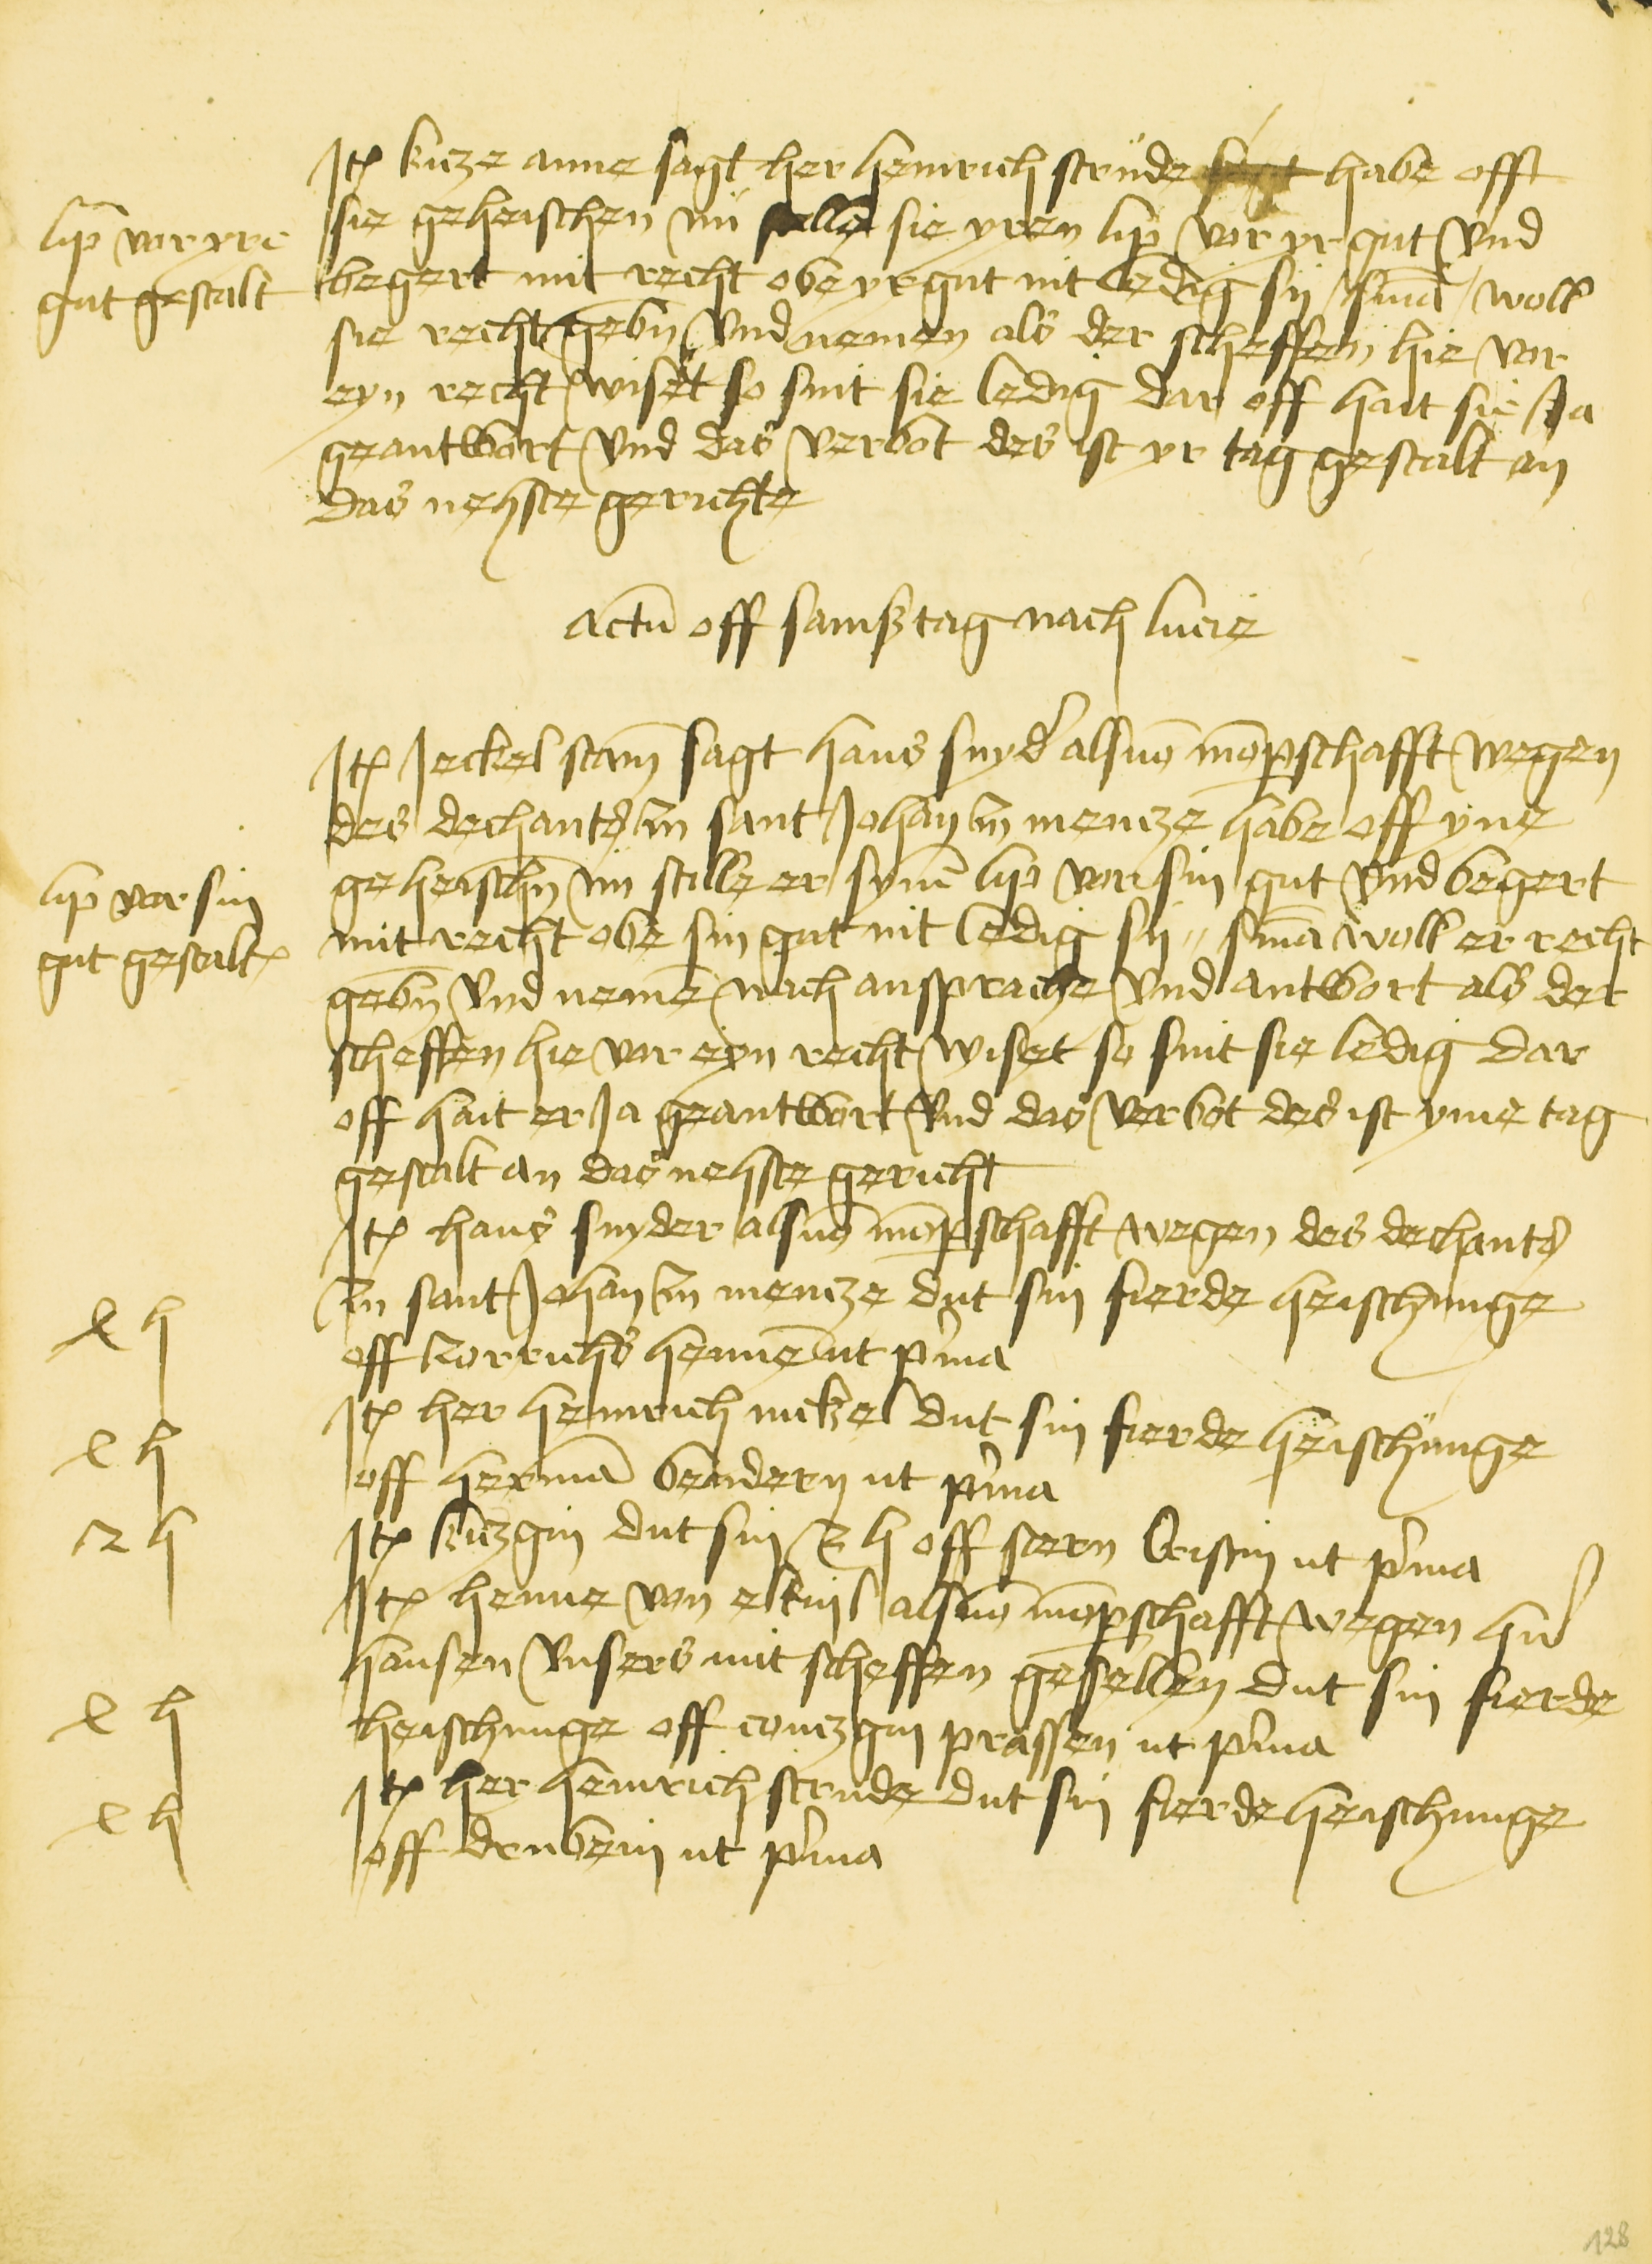 Itē kicze anne sagt her heinrich strude habe offt
sie geheischen nū stelle sie yren lip vor yr gut vnd
lip vor yre
gut gestalt
begert mit recht obe yr gut nit ledig sij sūma woll
sie recht gebñ vnd nemen als der scheffen hie vor
eyn recht wiset so sint sie ledig dar off hait sie Ja
geantwort vnd das verbot des ist yr tag gestalt an
das nehste gerichte
Actū off samßtag nach lucie
Itē Jeckel stam̄ sagt hans snyd' als vō mōpschafft wegen
des dechants zū sant Johan zū mencze habe off yne
geheischñ nū stille er synē lip vor sin gut vnd begert
lip vor sin
gut gestalt
mit recht obe sin gut nit ledig sij sūma woll er recht
gebñ vnd nemē nach ansprache vnd antwort als der
scheffen hie vor eyn recht wiset so sint sie ledig dar
off hait er Ja geantwort vnd das verbot des ist yme tag
gestalt an das nehste gericht
Itē hans snyder als vō mōpschafft wegen des dechants
zū sant Johan zū mencze dut sin fierde heischunge
off korrichs hennē ut p'ma
Itē her heinrich nickel dut sin fierde heischunge
off hermā bendern ut p'ma
Itē kiczgin dut sin 2 h off stern cristin ut p'ma
Itē henne von eltuil als vō mōpschafft wegen
hansen vnsers mit scheffen gesellen dut sin fierde
heischunge off conczgin prassen ut p'ma
Itē her heinrich strude dut sin fierde heischunge
off drubein ut p'ma
4 h
4 h
2 h
4 h
4 h
128